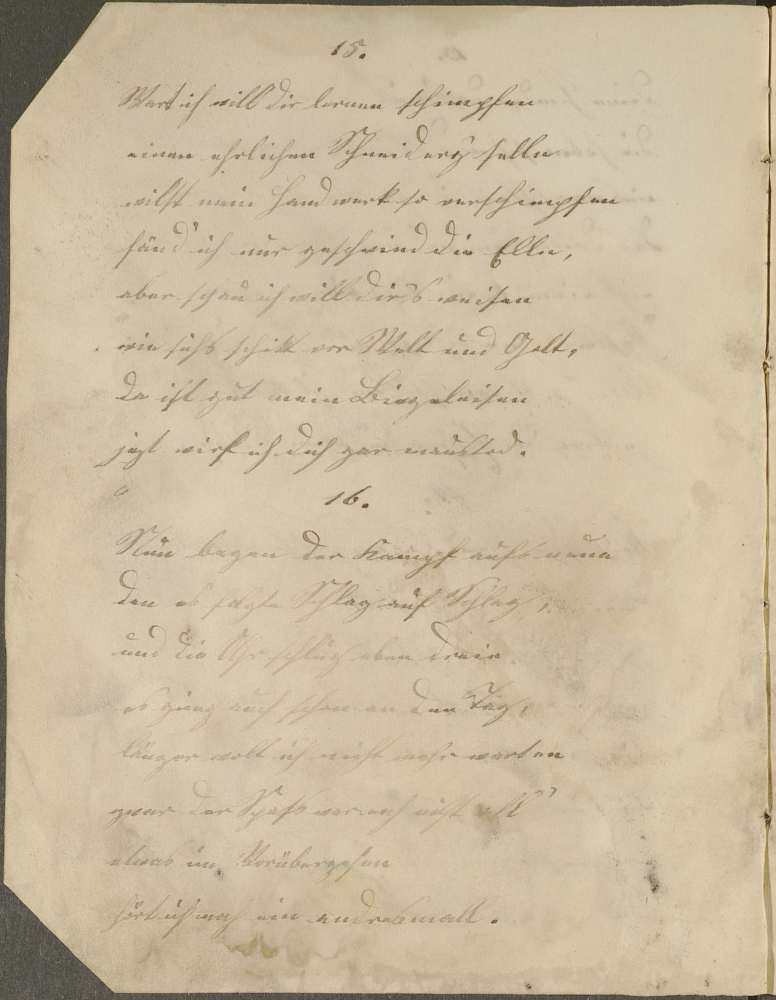 15.
Wart ich will dir lernen schimpfen
einen ehrlichen Schneiderg'selln
wilst mein Handwerk so verschimpfen
fänd' ich nur geschwind die Elln,
aber schau ich will dir's weisen
wie sichs schikt vor Welt und Gott,
da ist gut mein Biegeleisen
jezt wirf ich dich gar maustod.
16.
Nun began der Kampf aufs neue
den es folgte Schlag auf Schlag,
und die Uhr schlug eben dreie
es gieng auch schon an den Tag,
länger wolt ich nicht mehr warten
zwar der Spaß war noch nicht all'
etwas im Vorübergehen
hört ich noch ein andresmall.